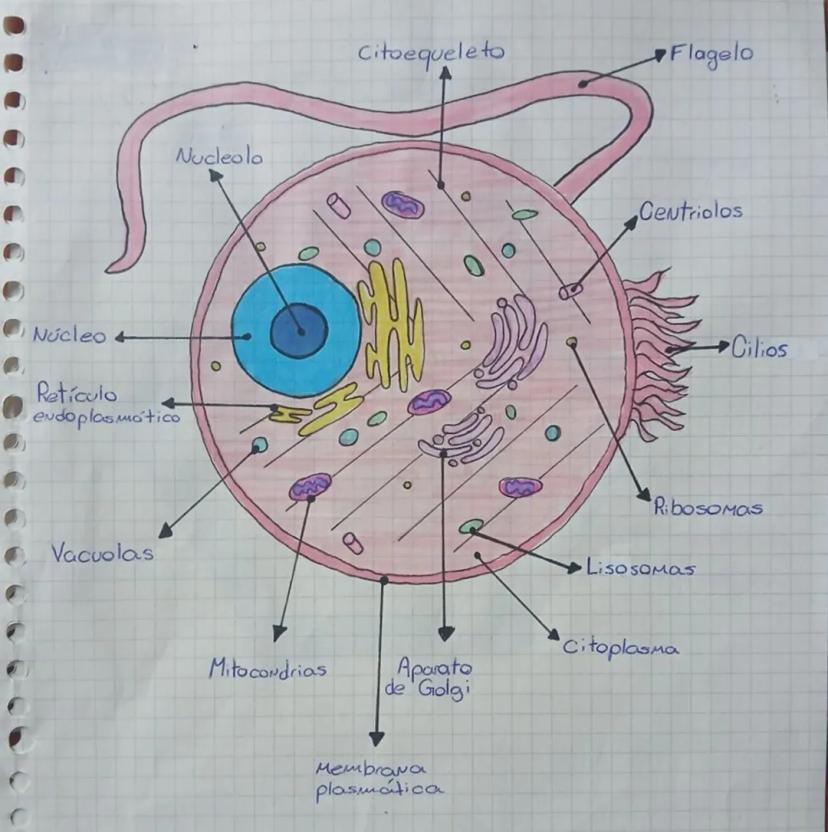 Citoequeleto
Flagelo
Nucleolo
Centriolos
Núcleo
Cilios
Retículo
endoplasmático
Ribosomas
Vacuolas
Lisosomas
Citoplasma
Mitocondrias
Aparato
de Golgi
Membrana
plasmática